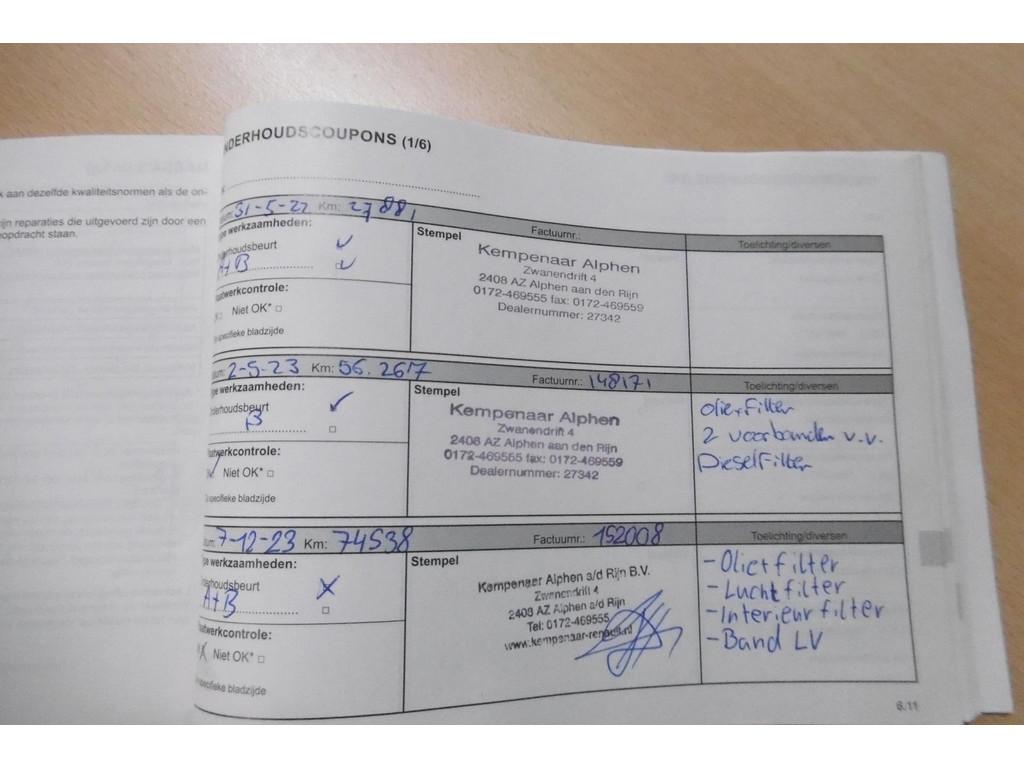 k aan dezelfde kwaliteitsnormen als de on-
ijn reparaties die uitgevoerd zijn door een
opdracht staan.
NDERHOUDSCOUPONS (1/6)
31-5-22 Km:
Factuurnr.:
Toelichting/diversen
pe werkzaamheden:
derhoudsbeurt
A+B
Stempel
Kempenaar Alphen
Zwanendrift 4
2408 AZ Alphen aan den Rijn
0172-469555 fax: 0172-469559
Dealernummer: 27342
aatwerkcontrole:
Niet OK* □
specifieke bladzijde
um: 2-5-23 Km: 56.267
Factuurnr.: 148171
Toelichting/diversen
pe werkzaamheden:
derhoudsbeurt
B
Stempel
Kempenaar Alphen
Zwanendrift 4
2408 AZ Alphen aan den Rijn
0172-469555 fax: 0172-469559
Dealernummer: 27342
olie+filter
2 voorbanden v.v.
Dieselfilter
aatwerkcontrole:
Niet OK* □
specifieke bladzijde
um: 7-12-23 Km: 74538
Factuurnr.: 152008
Toelichting/diversen
pe werkzaamheden:
derhoudsbeurt
A+B
Stempel
Kempenaar Alphen a/d Rijn B.V.
Zwanendrift 4
2408 AZ Alphen a/d Rijn
Tel: 0172-469555
www.kempenaar-renault.nl
-Olie+filter
-Luchtfilter
-Interieurfilter
-Band LV
aatwerkcontrole:
Niet OK* □
specifieke bladzijde
6.11